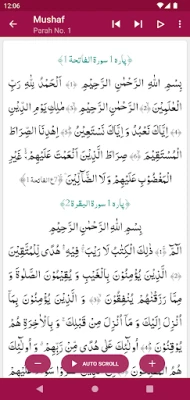 12:06
Mushaf
Parah No. 1
﴿پاره ١ سورة الفاتحة 1﴾
بِسْمِ اللهِ الرَّحْمٰنِ الرَّحِيْمِ ﴿﴾ اَلْحَمْدُ لِلّٰهِ رَبِّ
الْعٰلَمِيْنَ ﴿﴾ الرَّحْمٰنِ الرَّحِيْمِ ﴿﴾ مٰلِكِ يَوْمِ الدِّيْنِ
﴿﴾ اِيَّاكَ نَعْبُدُ وَ اِيَّاكَ نَسْتَعِيْنُ ﴿﴾ اِهْدِنَا الصِّرَاطَ
الْمُسْتَقِيْمَ ﴿﴾ صِرَاطَ الَّذِيْنَ اَنْعَمْتَ عَلَيْهِمْ ۙ غَيْرِ
الْمَغْضُوْبِ عَلَيْهِمْ وَ لَا الضَّآلِّيْنَ
﴿پاره ١ سورة البقرة 2﴾
بِسْمِ اللهِ الرَّحْمٰنِ الرَّحِيْمِ
الٓمّٓ ﴿﴾ ذٰلِكَ الْكِتٰبُ لَا رَيْبَ ۛ فِيْهِ ۛ هُدًى لِّلْمُتَّقِيْنَ
﴿﴾ الَّذِيْنَ يُؤْمِنُوْنَ بِالْغَيْبِ وَ يُقِيْمُوْنَ الصَّلٰوةَ وَ
مِمَّا رَزَقْنٰهُمْ يُنْفِقُوْنَ ﴿﴾ وَ الَّذِيْنَ يُؤْمِنُوْنَ بِمَآ
اُنْزِلَ اِلَيْكَ وَ مَآ اُنْزِلَ مِنْ قَبْلِكَ ۚ وَ بِالْاٰخِرَةِ هُمْ
يُوْقِنُوْنَ ﴿﴾ اُولٰٓئِكَ عَلٰى هُدًى مِّنْ رَّبِّهِمْ ۗ وَ اُولٰٓئِكَ
AUTO SCROLL